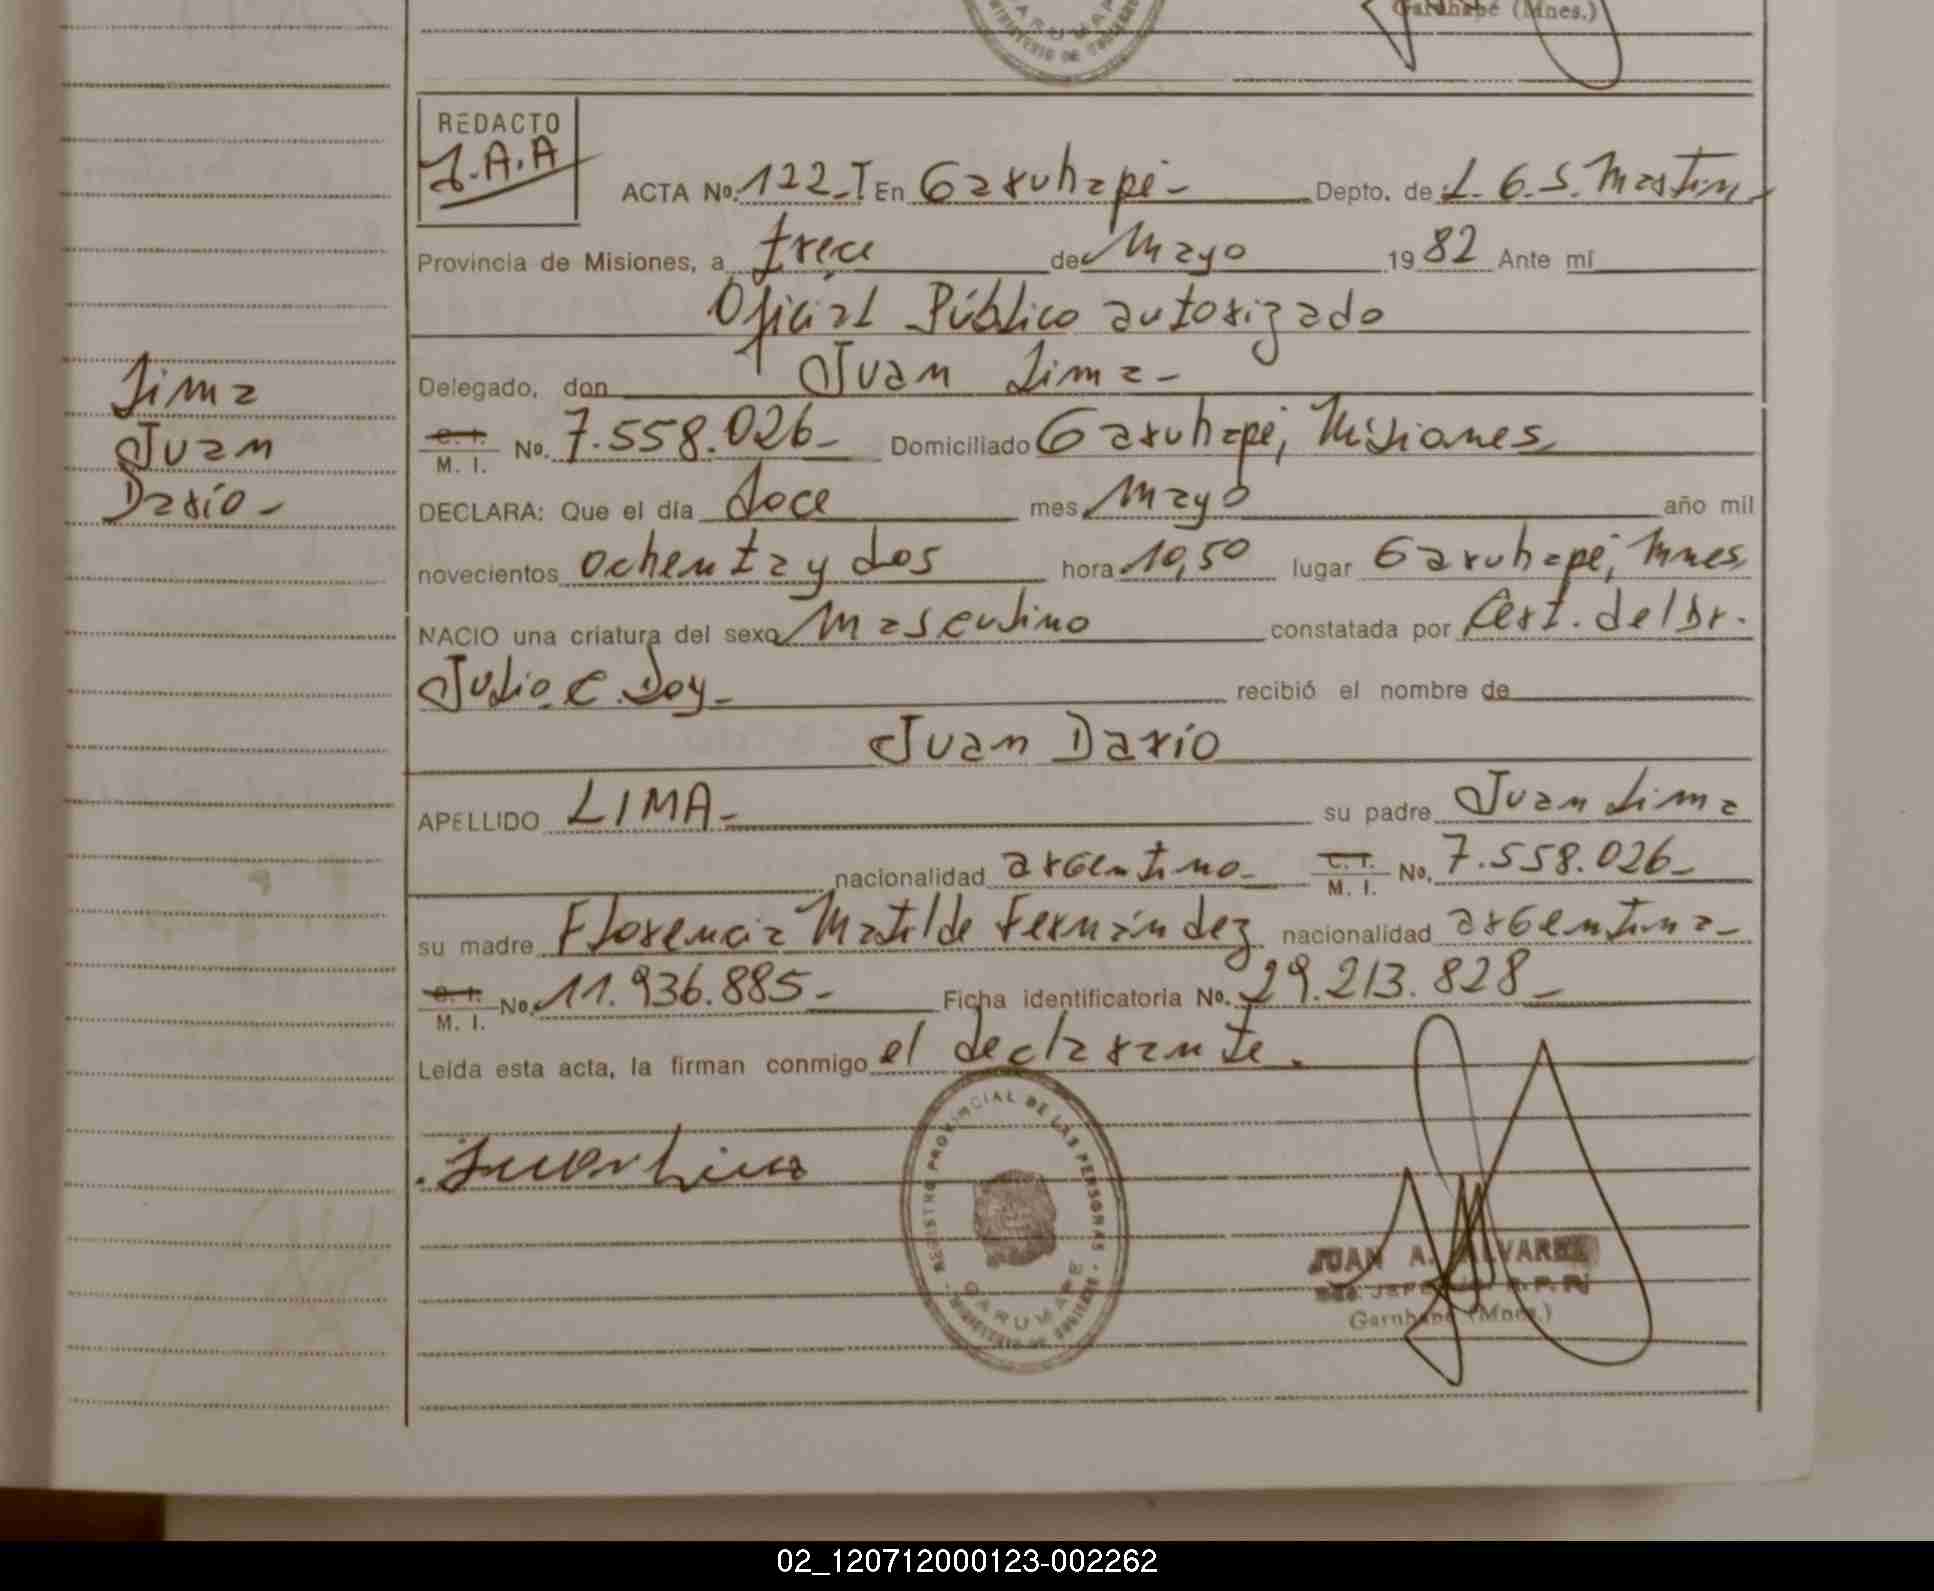 Garuhapé (Mnes.)
REDACTO
J.A.A
ACTA No. 122-I En Garuhapé- Depto. de L.G.S. Martín
Provincia de Misiones, a trece de Mayo 19 82 Ante mí
Oficial Público autorizado
Delegado, don Juan Lima-
C. I. M. I. No. 7.558.026- Domiciliado Garuhapé, Misiones
DECLARA: Que el día doce mes Mayo año mil
novecientos ochenta y dos hora 10,50 lugar Garuhapé, Mnes.
NACIO una criatura del sexo Masculino constatada por Cert. del Dr.
Julio C. Doy- recibió el nombre de
Juan Darío
APELLIDO LIMA- su padre Juan Lima
nacionalidad argentino- C. I. M. I. No. 7.558.026-
su madre Florencia Matilde Fernández nacionalidad argentina-
C. I. M. I. No. 11.936.885- Ficha identificatoria No. 29.213.828-
Leída esta acta, la firman conmigo el declarante.
Lima
Juan
Darío-
Juan Lima
REGISTRO PROVINCIAL DE LAS PERSONAS
GARUHAPE
MINISTERIO DE GOBIERNO
JUAN A. ALVAREZ
Garuhapé (Mnes.)
02_120712000123-002262